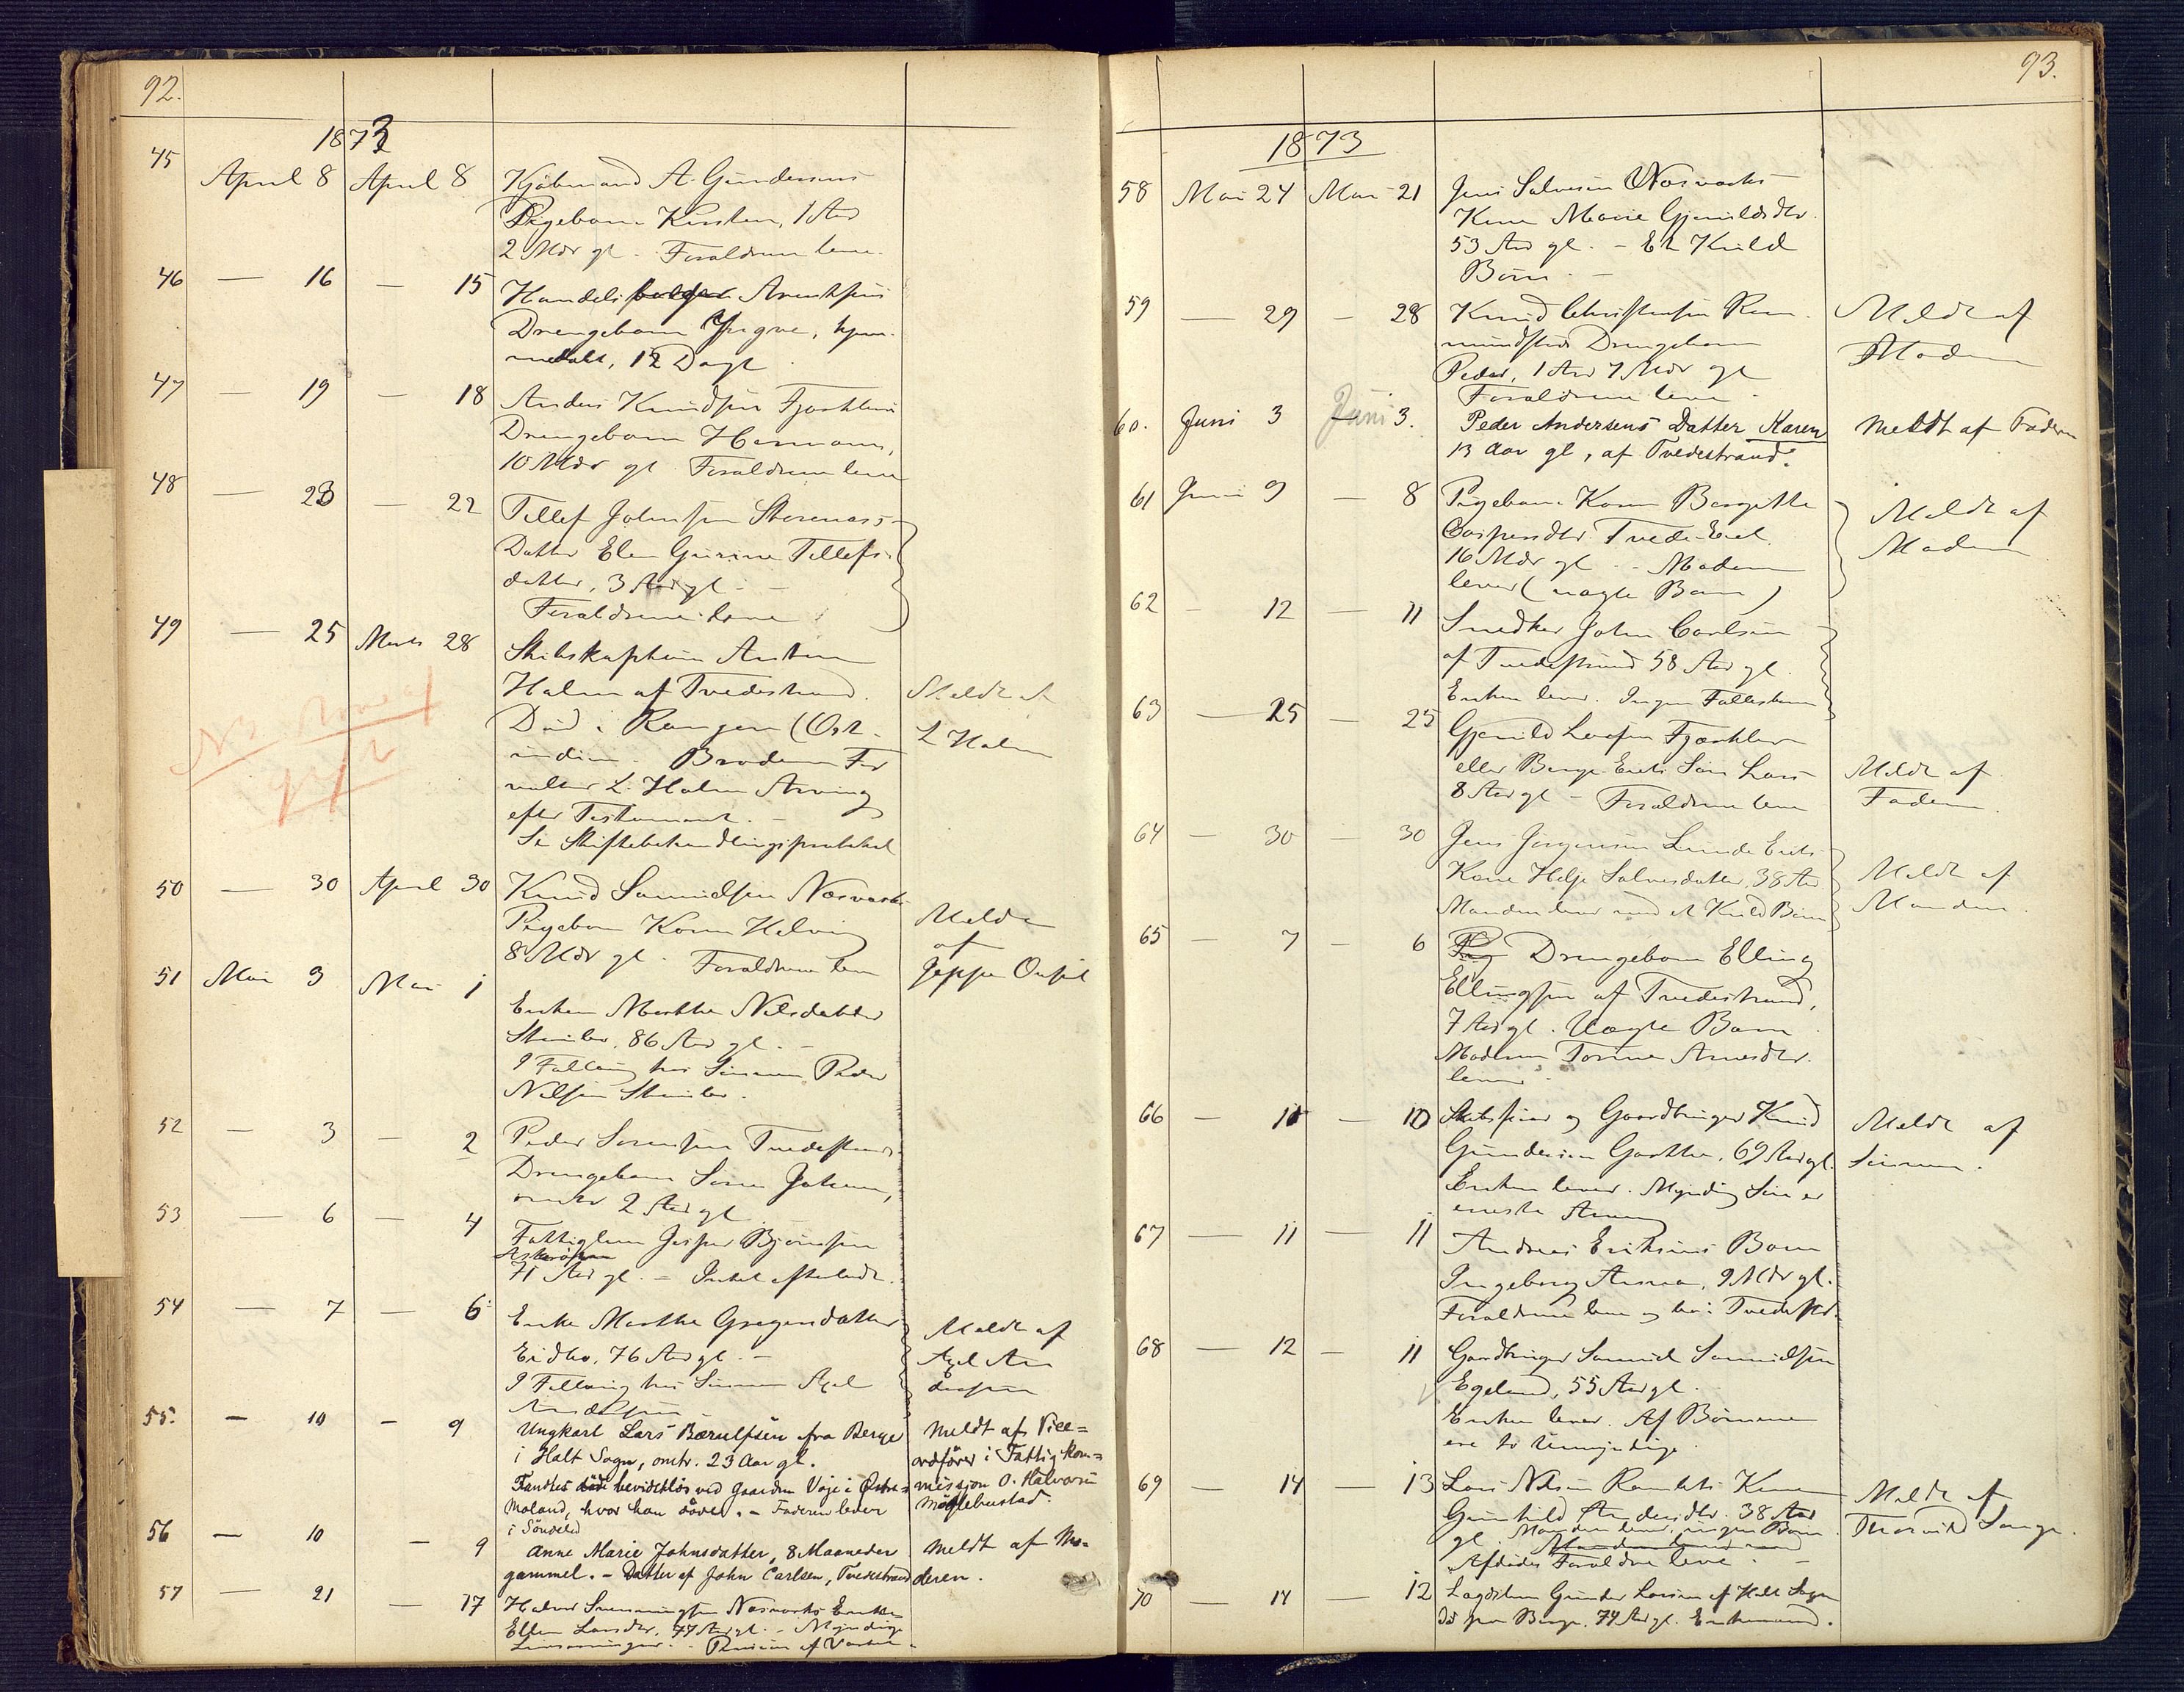 92.
1873
45 April 8 April 8 Kjøbmand A. Gundersens
Pigebarn Kirsten, 1 Aar
2 Mdr gl. Forældrene leve.
46 — 16 — 15 Handels Arentsens
Drengebarn Yngve, hjem-
medøbt, 12 Dage
47 — 19 — 18 Anders Knudsen Fjærkleiv
Drengebarn Hermann,
10 Mdr gl. Forældrene leve
48 — 23 — 22 Tellef Johnsen Storenæs
Datter Elen Gurine Tellefs-
datter, 3 Aar gl. —
Forældrene leve
49 — 25 Marts 28 Skibskaptein Anton
Holm af Tvedestrand.
Død i Rangon (Ost-
indien. Broderen For
valter L. Holm Arving
efter Testament. —
Se Skiftebehandlingsprotokol
Meldt af
L Holm
50 — 30 April 30 Knud Samuelsen Næsværks
Pigebarn Karen Helvig
8 Mdr gl. Forældrene leve
Meldt
af
Jeppe
51 Mai 3 Mai 1 Enken Marthe Nilsdatter
86 Aar gl. —
I Fællig hos Sønnen Peder
Nilsen
52 — 3 — 2 Peder Sørensen Tvedestrand
Drengebarn Søren Johan,
omtr 2 Aar gl
53 — 6 — 4 Fattiglem Jesper Bjørnsen
71 Aar gl. — Intet efterladt.
54 — 7 — 6 Enke Marthe Gregersdatter
Eidbo, 76 Aar gl. —
I Fællig hos Sønnen Axel
Andersen
Meldt af
Axel An
dersen
55. — 10 — 9 Ungkarl Lars Bærulfsen fra Berge
i Holt Sogn, omtr. 23 Aar gl.
Fandtes bevidstløs ved Gaarden Voje i Østre
Moland, hvor han døde. — Faderen lever
i Søndeled
Meldt af Vice=
ordfører i Fattigkom=
mission O. Halvorsen
Møglebustad.
56 — 10 — 9 Anne Marie Johnsdatter, 8 Maaneder
gammel. — Datter af John Carlsen, Tvedestrand
Meldt af Mo-
deren.
57 — 21 — 17 Halvor Svenningsen Næsværks Enke
Ellen Larsdtr, 77 Aar gl. — Myndige
Livsarvinger. — Pension af Værket.
93.
1873
58 Mai 24 Mai 21 Jens Salvesen Næsværks
Kone Marie Gjeruldsdtr.
53 Aar gl. — Et Kuld
Børn. —
59 — 29 — 28 Knud Christensen
Drengebarn
Peder, 1 Aar 7 Mdr gl
Forældrene leve.
Meldt af
Moderen
60. Juni 3 Juni 3. Peder Andersens Datter Karen
13 Aar gl, af Tvedestrand.
Meldt af Faderen
61 Juni 9 — 8 Pigebarn Karen Bergitte
Caspersdtr Tvede-Eiet
16 Mdr gl. — Moderen
lever (uægte Barn)
Meldt af
Moderen
62 — 12 — 11 Snedker John Carlsen
af Tvedestrand 58 Aar gl.
Enken lever. Ingen Fællesbørn
63 — 25 — 25 Gjeruld Larsen Fjærkleiv
eller Berge Eiets Søn Lars
8 Aar gl — Forældrene leve
Meldt af
Faderen
64 — 30 — 30 Jens Jørgensen Lunde Eiets
Kone Helje Salvesdatter, 38 Aar
Manden lever med et Kuld Børn
Meldt af
Manden
65 — 7 — 6 Drengebarn Elling
Ellingsen af Tvedestrand,
7 Aar gl. Uægte Barn
Moderen Torine Arnesdtr.
lever.
66 — 11 — 10 Skibsfører og Gaardbruger Knud
Gundersen Goderstad, 69 Aar gl.
Enken lever. Myndig Søn er
eneste Arving
Meldt af
Sønnen.
67 — 11 — 11 Andreas Eriksens Barn
Ingeborg Anna, 9 Mdr gl.
Forældrene leve og bo i Tvedestd.
68 — 12 — 11 Gaardbruger Samuel Samuelsen
Egeland, 55 Aar gl.
Enken lever. Af Børnene
ere to umyndige.
69 — 14 — 13 Lars Nilsen Kone
Gunhild Andersdtr. 38 Aar
gl. Manden lever, ingen Børn.
Afdødes Forældre leve. —
Meldt af
Thorvald Lange.
70 — 14 — 12 Lægdslem Gunder Larsen af Holt Sogn
Berge. 74 Aar gl. Enkemand.